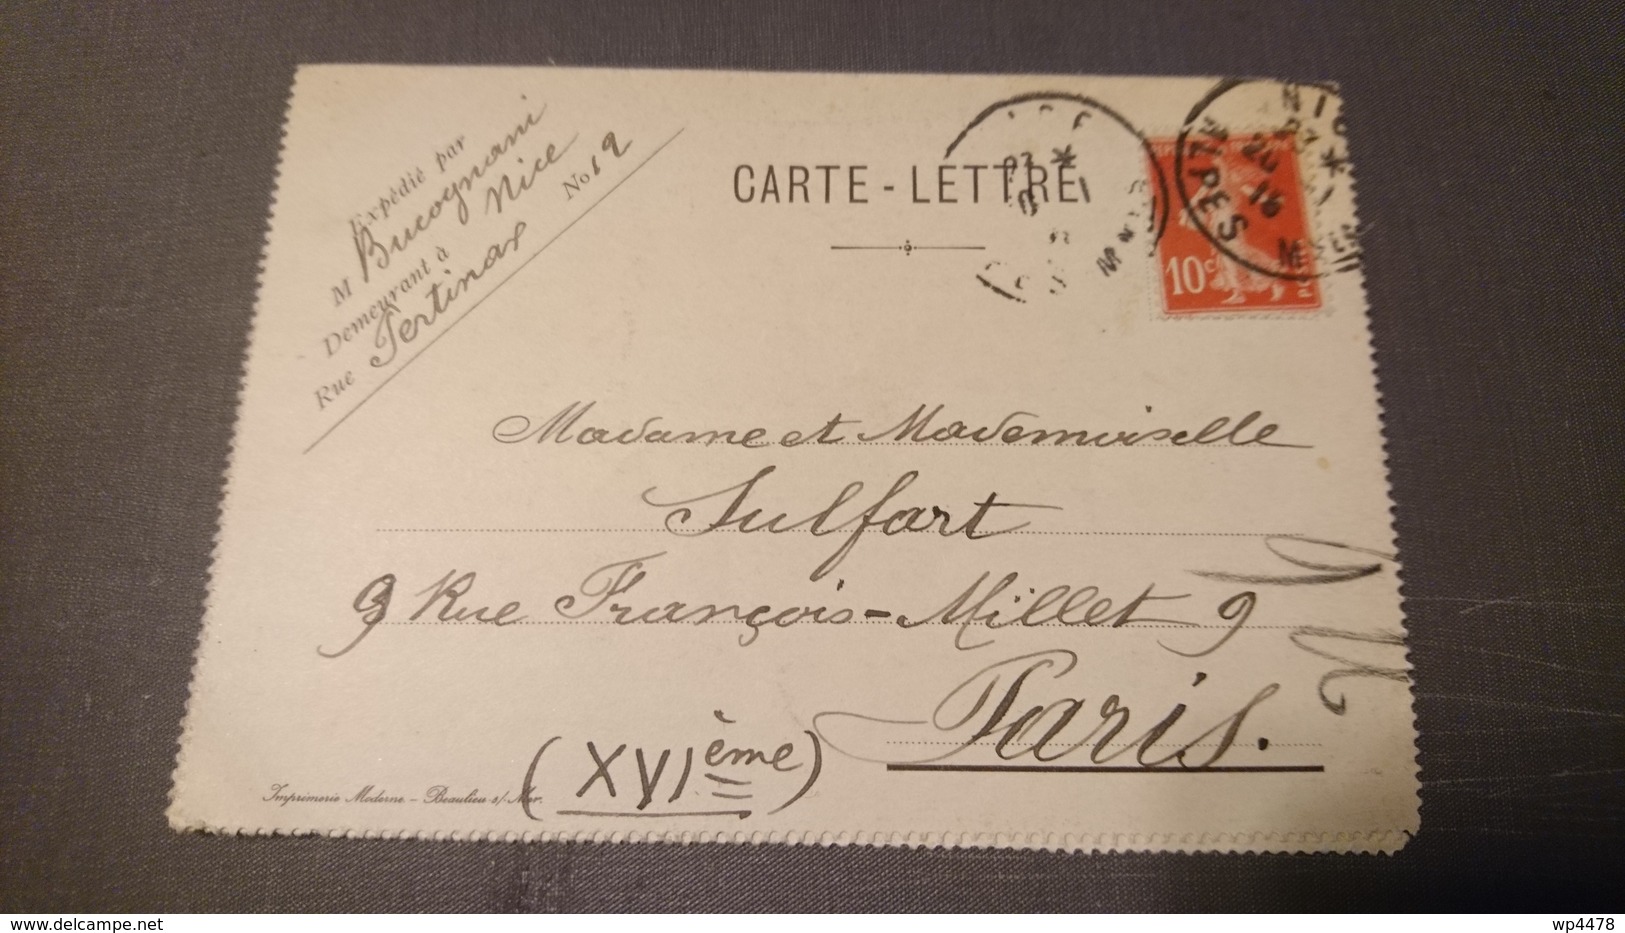 Expédié par
M Bucognani
Demeurant à Nice
Rue Pertinax No 12
CARTE - LETTRE
10c
ALPES
Madame et Mademoiselle
Sulfart
9 Rue François-Millet 9
Paris.
(XVIème)
Imprimerie Moderne - Beaulieu s/-Mer.
delcampe.net
wp4478